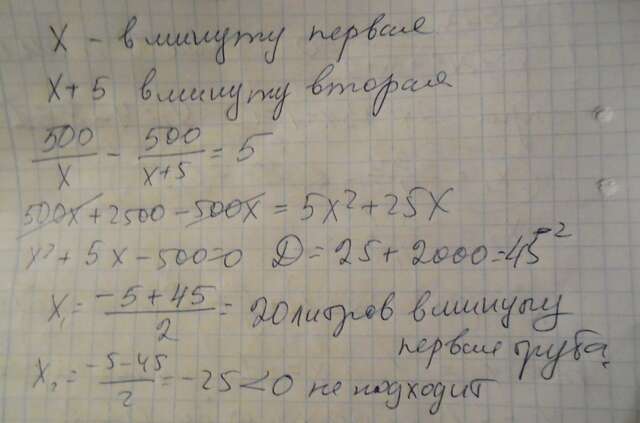 x - в минуту первая
x+5 в минуту вторая
500/x - 500/(x+5) = 5
500x + 2500 - 500x = 5x² + 25x
x² + 5x - 500 = 0 D = 25 + 2000 = 45²
x₁ = (-5+45)/2 = 20 литров в минуту
первая труба.
x₂ = (-5-45)/2 = -25 < 0 не подходит